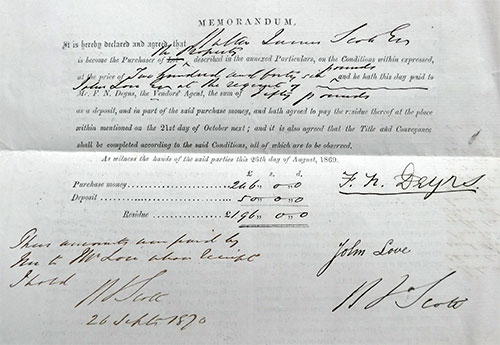 MEMORANDUM.
It is hereby declared and agreed, that Walter James Scott Esq
the Property
is become the Purchaser of described in the annexed Particulars, on the Conditions within expressed,
pounds
at the price of Two hundred and forty six and he hath this day paid to
John Love Esq at the request of
Mr. F. N. Deyns, the Vendors' Agent, the sum of fifty pounds
as a deposit, and in part of the said purchase money, and hath agreed to pay the residue thereof at the place
within mentioned on the 21st day of October next; and it is also agreed that the Title and Conveyance
shall be completed according to the said Conditions, all of which are to be observed.
As witness the hands of the said parties this 25th day of August, 1869.
£ s. d.
Purchase money 246 " 0 " 0
Deposit 50 " 0 " 0
Residue £196 " 0 " 0
F. N. Deyns.
These accounts were paid by
me to Mr Love whose receipt
I hold
W J Scott
26 Septr 1870
John Love
W Js Scott